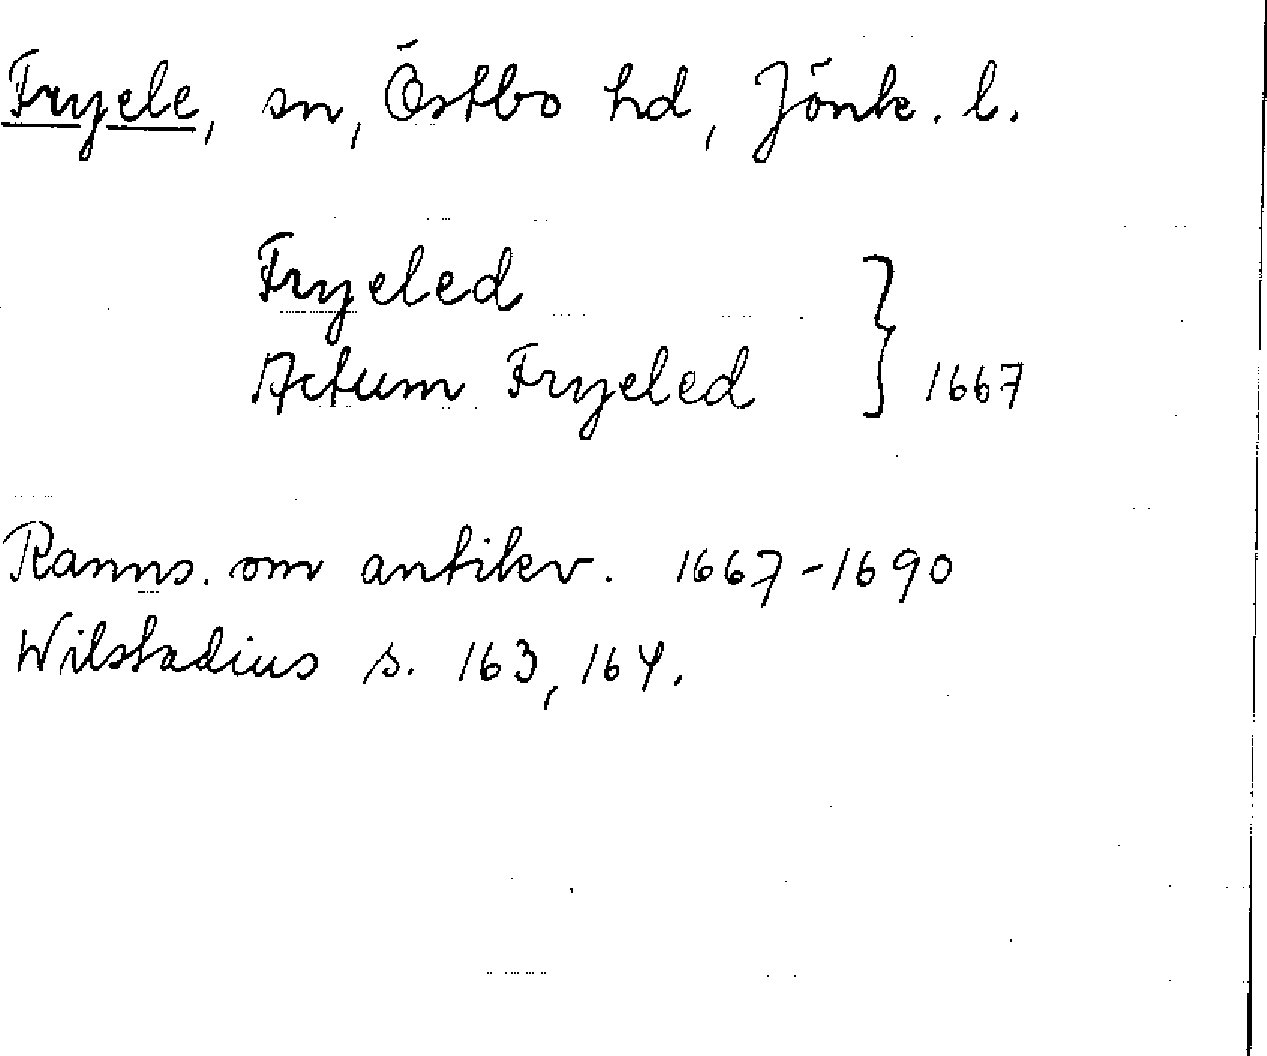 Fryele, sn, Östbo hd, Jönk. l.
Fryeled
Actum Fryeled } 1667
Ranns. om antikv. 1667-1690
Wilstadius s. 163, 164.